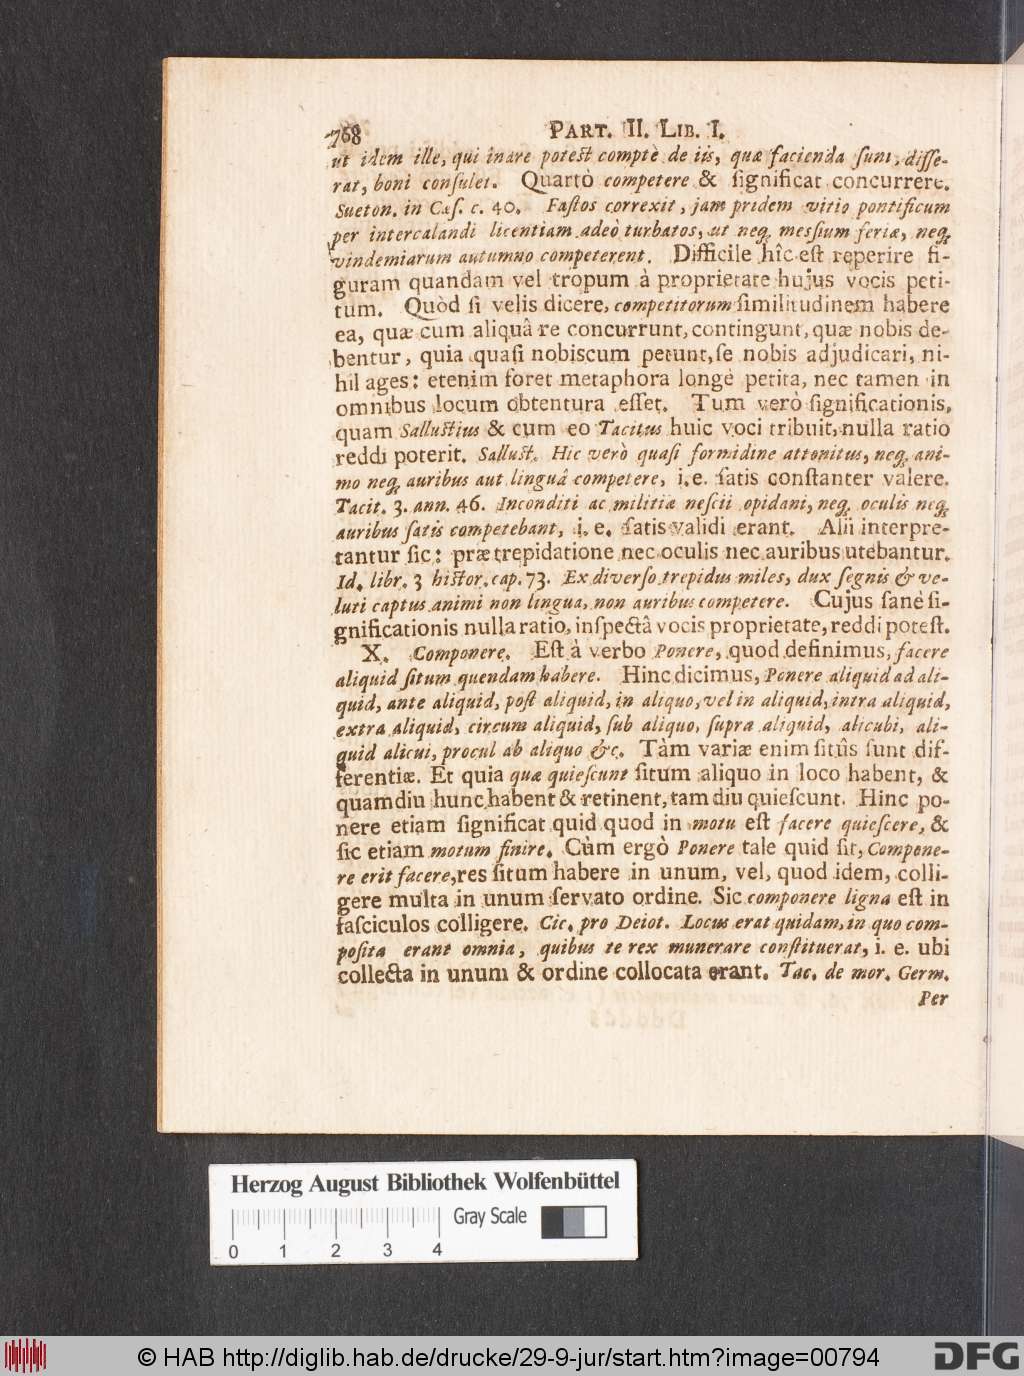 768 PART. II. LIB. I.
ut idem ille, qui inare potest comptè de iis, quæ facienda ſunt, diſſe-
rat, boni conſulet. Quartò competere & ſignificat concurrere.
Sueton. in Cæſ. c. 40. Faſtos correxit, jam pridem vitio pontificum
per intercalandi licentiam adeò turbatos, ut neq; meſſium feriæ, neq;
vindemiarum autumno competerent. Difficile hîc eſt reperire fi-
guram quandam vel tropum à proprietate hujus vocis peti-
tum. Quòd ſi velis dicere, competitorum ſimilitudinem habere
ea, quæ cum aliquâ re concurrunt, contingunt, quæ nobis de-
bentur, quia quaſi nobiscum petunt, ſe nobis adjudicari, ni-
hil ages: etenim foret metaphora longè petita, nec tamen in
omnibus locum obtentura eſſet. Tum verò ſignificationis,
quam Salluſtius & cum eo Tacitus huic voci tribuit, nulla ratio
reddi poterit. Salluſt. Hic verò quaſi formidine attonitus, neq; ani-
mo neq; auribus aut linguâ competere, i. e. ſatis conſtanter valere.
Tacit. 3. ann. 46. Inconditi ac militiæ neſcii opidani, neq; oculis neq;
auribus ſatis competebant, i. e. ſatis validi erant. Alii interpre-
tantur ſic: præ trepidatione nec oculis nec auribus utebantur.
Id. libr. 3 hiſtor. cap. 73. Ex diverſo trepidus miles, dux ſegnis & ve-
luti captus animi non lingua, non auribus competere. Cujus ſanè ſi-
gnificationis nulla ratio, inſpectâ vocis proprietate, reddi poteſt.
X. Componere. Eſt à verbo Ponere, quod definimus, facere
aliquid ſitum quendam habere. Hinc dicimus, Ponere aliquid ad ali-
quid, ante aliquid, poſt aliquid, in aliquo, vel in aliquid, intra aliquid,
extra aliquid, circum aliquid, ſub aliquo, ſupra aliquid, alicubi, ali-
quid alicui, procul ab aliquo &c. Tàm variæ enim ſitûs ſunt dif-
ferentiæ. Et quia quæ quieſcunt ſitum aliquo in loco habent, &
quamdiu hunc habent & retinent, tam diu quieſcunt. Hinc po-
nere etiam ſignificat quid quod in motu eſt facere quieſcere, &
ſic etiam motum finire. Cùm ergò Ponere tale quid ſit, Compone-
re erit facere, res ſitum habere in unum, vel, quod idem, colli-
gere multa in unum ſervato ordine. Sic componere ligna eſt in
faſciculos colligere. Cic. pro Deiot. Locus erat quidam, in quo com-
poſita erant omnia, quibus te rex munerare conſtituerat, i. e. ubi
collecta in unum & ordine collocata erant. Tac. de mor. Germ.
Per
Herzog August Bibliothek Wolfenbüttel
0 1 2 3 4 Gray Scale
© HAB http://diglib.hab.de/drucke/29-9-jur/start.htm?image=00794
DFG